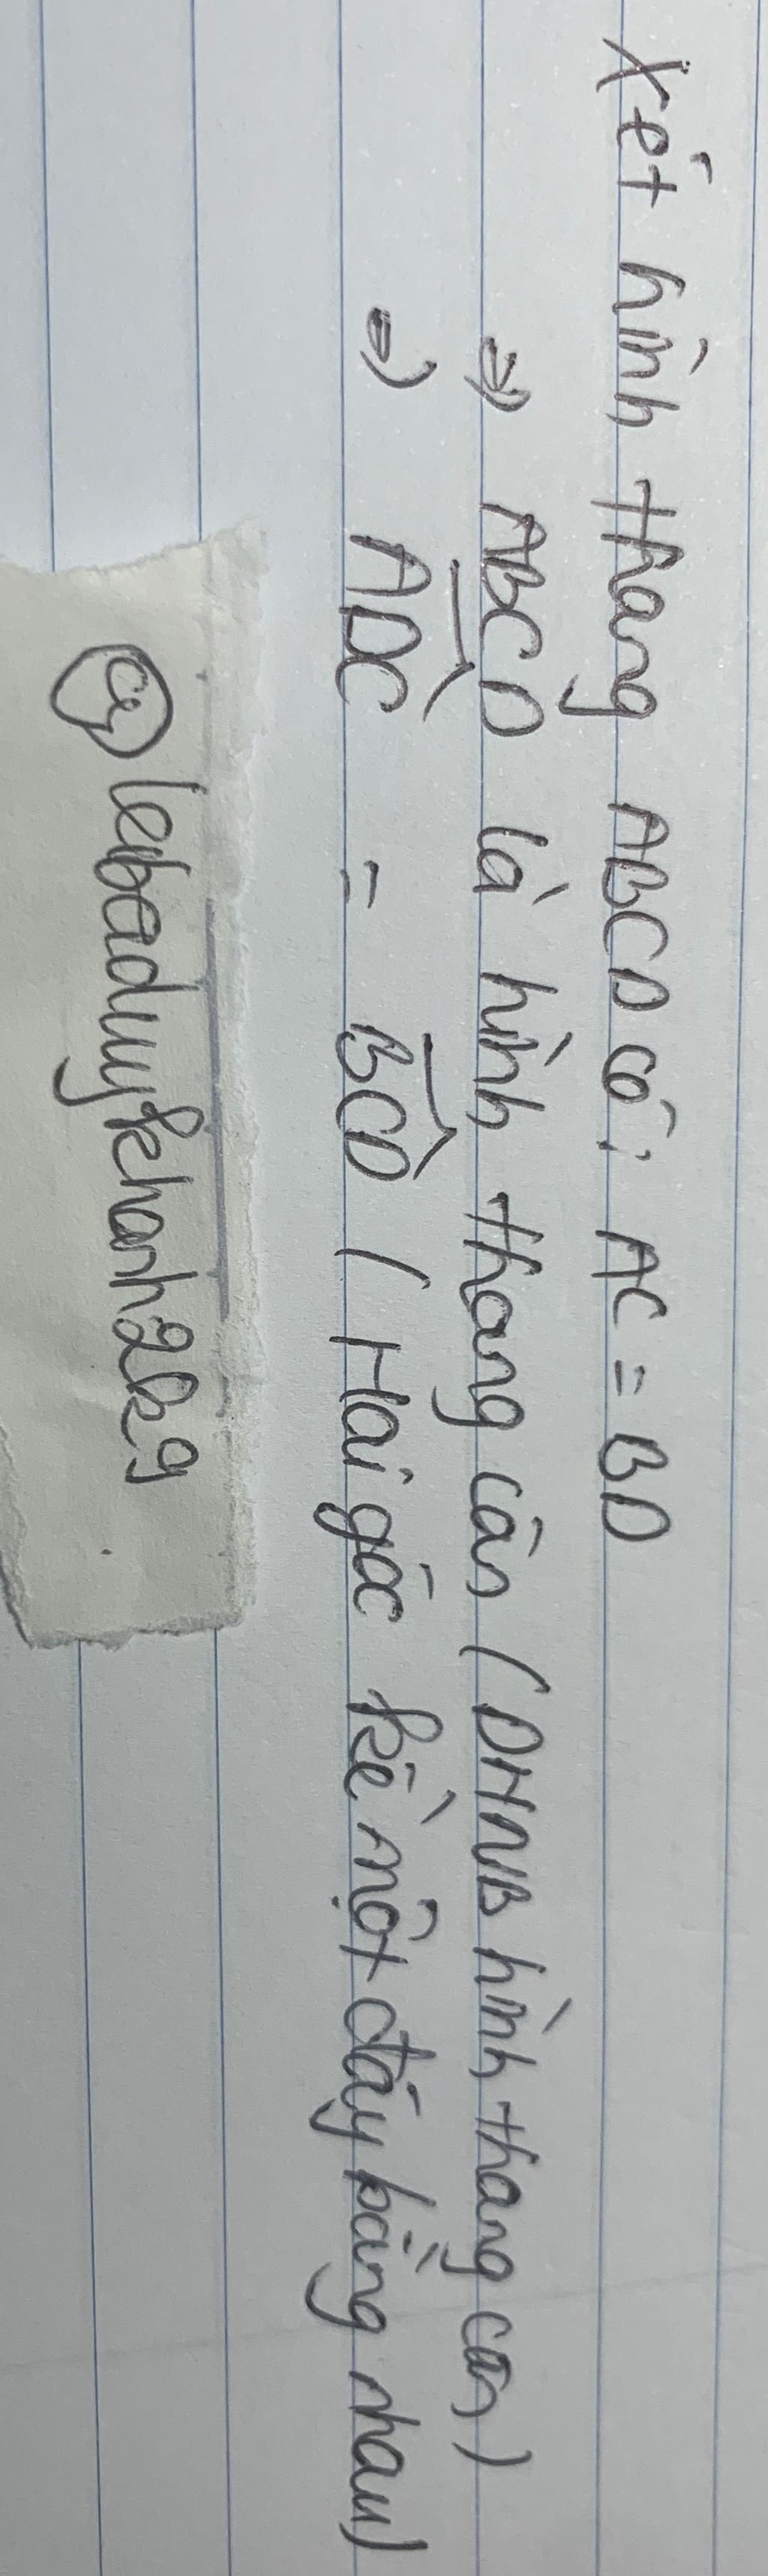 Xét hình thang ABCD có: AC = BD
=> ABCD là hình thang cân (DHNB hình thang cân)
=> ADC = BCD (Hai góc kề một đáy bằng nhau)
@lebaduykhanh2k9